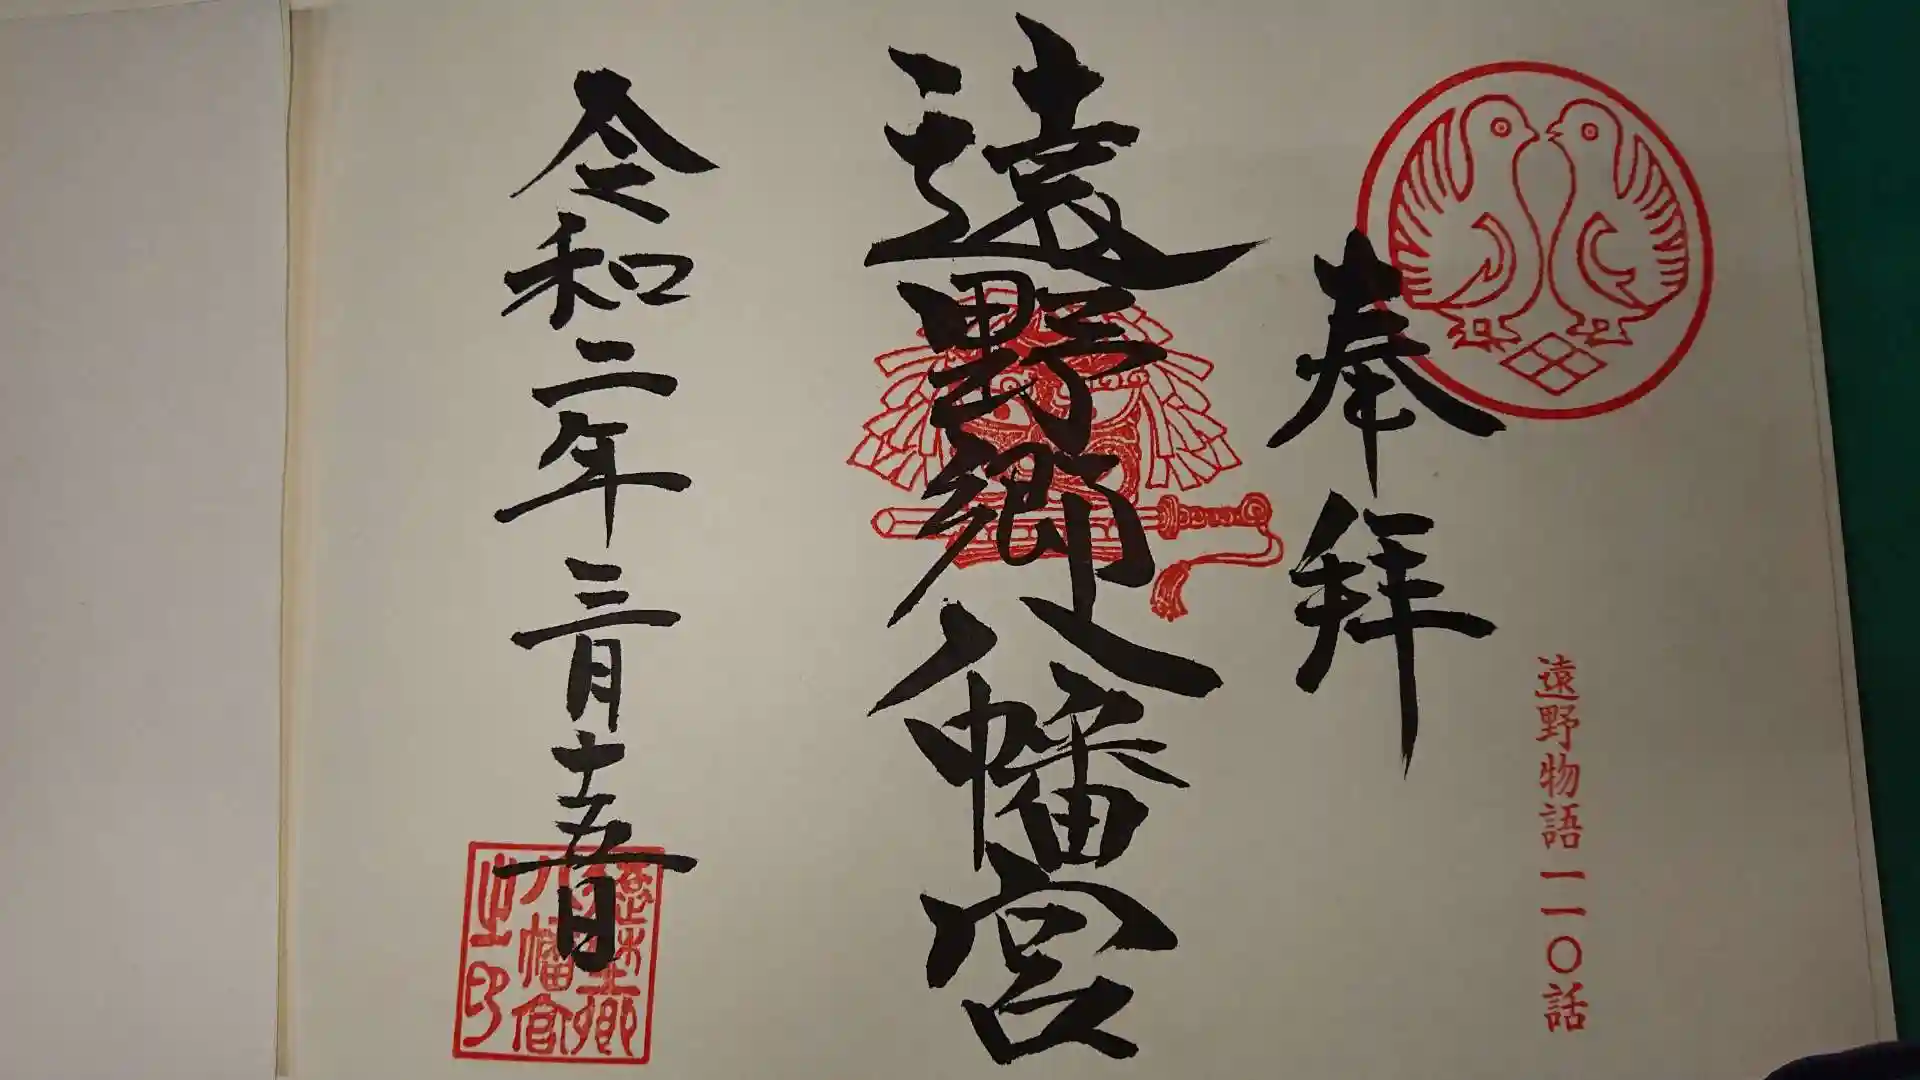 奉拝
遠野物語一一〇話
遠野郷八幡宮
令和二年三月十五日
八幡宮
之印